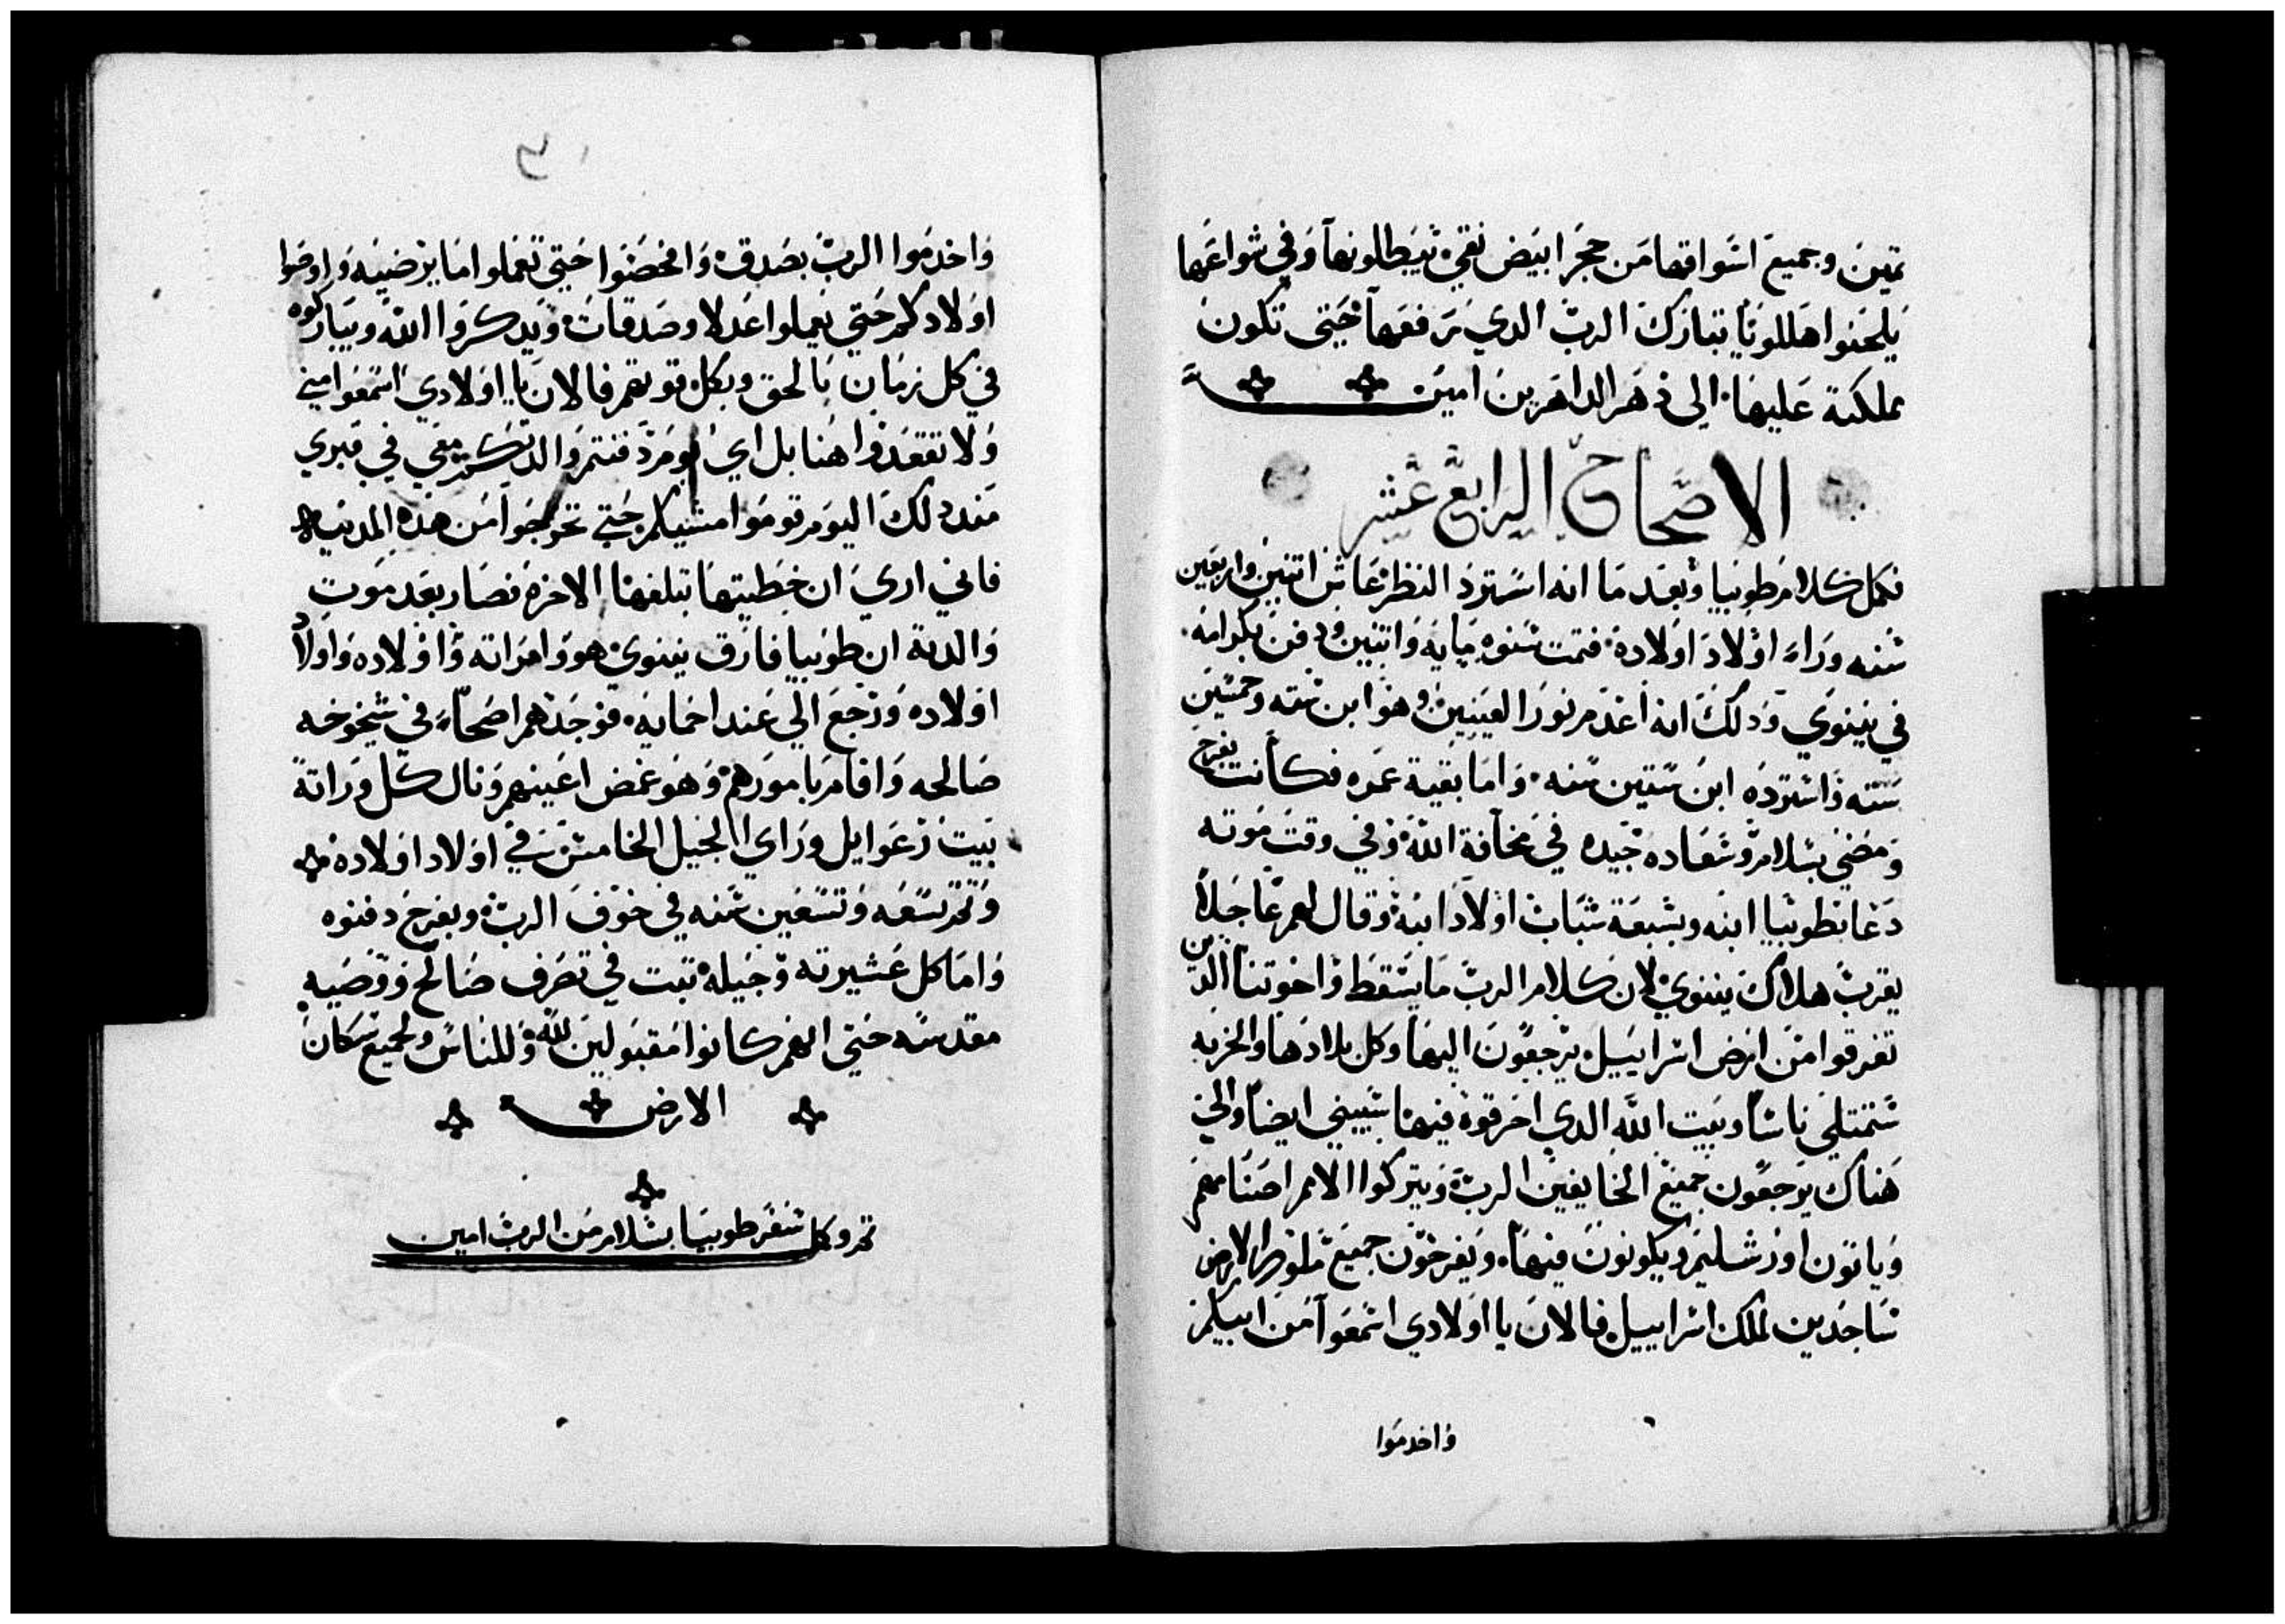 تمين وجميع اسواقها من حجر ابيض نقي تبيطا لونها وفي شوارعها
يلحنوا هللويا تبارك الرب الدي رفعها حتى تكون
مملكته عليها الى دهر الداهرين امين
الاصحاح الرابع عشر
فكمل كلام طوبيا وبعد ما انه استرد النظر عاش اتنين واربعين
سنه وراى اولاد اولاده فتمت سنوه مايه واتنين ودفن بكرامه
في نينوي ودلك انه اعدم نور العينين وهو ابن سته وخمسين
سنه واسترده ابن ستين سنه واما بقية عمره فكانت بفرح
ومضي بسلام وسعاده جيده في مخافة الله وفي وقت موته
دعا بطوبيا ابنه وبسبعة شباب اولاد ابنه وقال لهم عاجلا
يقرب هلاك نينوي لان كلام الرب ما يسقط واخوتنا الدين
تفرقوا من ارض اسراييل يرجعون اليها وكل بلادها والخربه
ستمتلي ناسا وبيت الله الدي احرقوه فيها سيبني ايضا والي
هناك يرجعون جميع الخايفين الرب ويتركوا الامم اصنامهم
وياتون اورشليم ويكونون فيها ويفرحون جميع ملوك الارض
ساجدين لملك اسراييل فالان يا اولادي اسمعوا من ابيكم
واخدموا
واخدموا الرب بصدق وافحصوا حتي تعملوا ما يرضيه واوصوا
اولادكم حتي يعملوا عدلا وصدقات ويدكروا الله ويباركوه
في كل زمان بالحق وبكل قوتهم فالان يا اولادي اسمعوا مني
ولا تقعدوا هنا بل اي يوم دفنتم والدتكم معي في قبري
مند دلك اليوم قوموا مشيكم حتي تخرجوا من هده المدينه
فاني اري ان خطيتها تبلغها الاخره فصار بعد موت
والدته ان طوبيا فارق نينوي هو وامراته واولاده واولاد
اولاده ورجع الي عند احمايه فوجدهم اصحاء في شيخوخه
صالحه واقام بامورهم وهو غمض اعينهم ونال كل وراتة
بيت رعوايل وراي الجيل الخامس في اولاد اولاده
وتم تسعه وتسعين سنه في خوف الرب وبفرح دفنوه
واما كل عشيرته وجيله تبت في تصرف صالح ووصيه
مقدسه حتي انهم كانوا مقبولين لله وللناس ولجميع سكان
الارض
تم وكمل سفر طوبيا بسلام من الرب امين